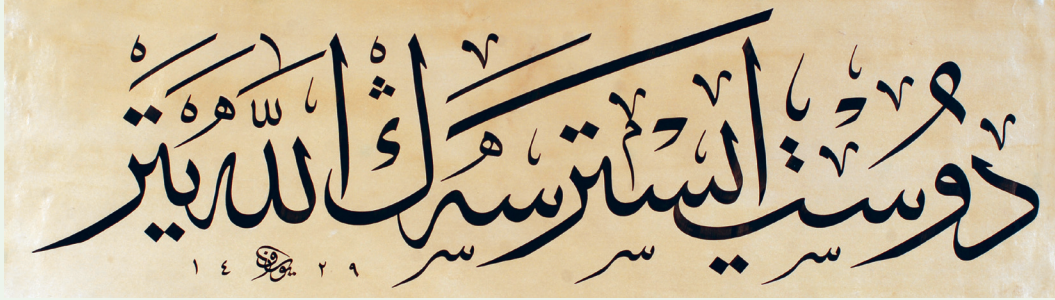 دوست ايسترسه ڭ الله يتر
١٤ ٢٩